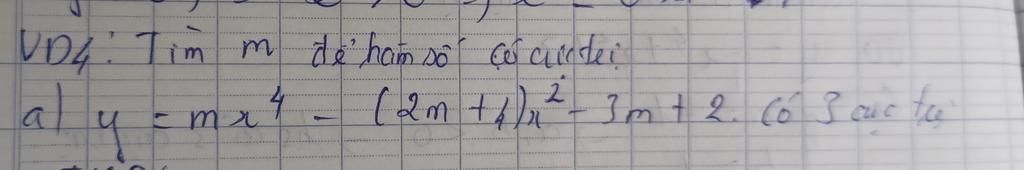 VD4: Tìm m để hàm số có cực đại
a) y = mx⁴ - (2m + 1)x² - 3m + 2. Có 3 cực trị